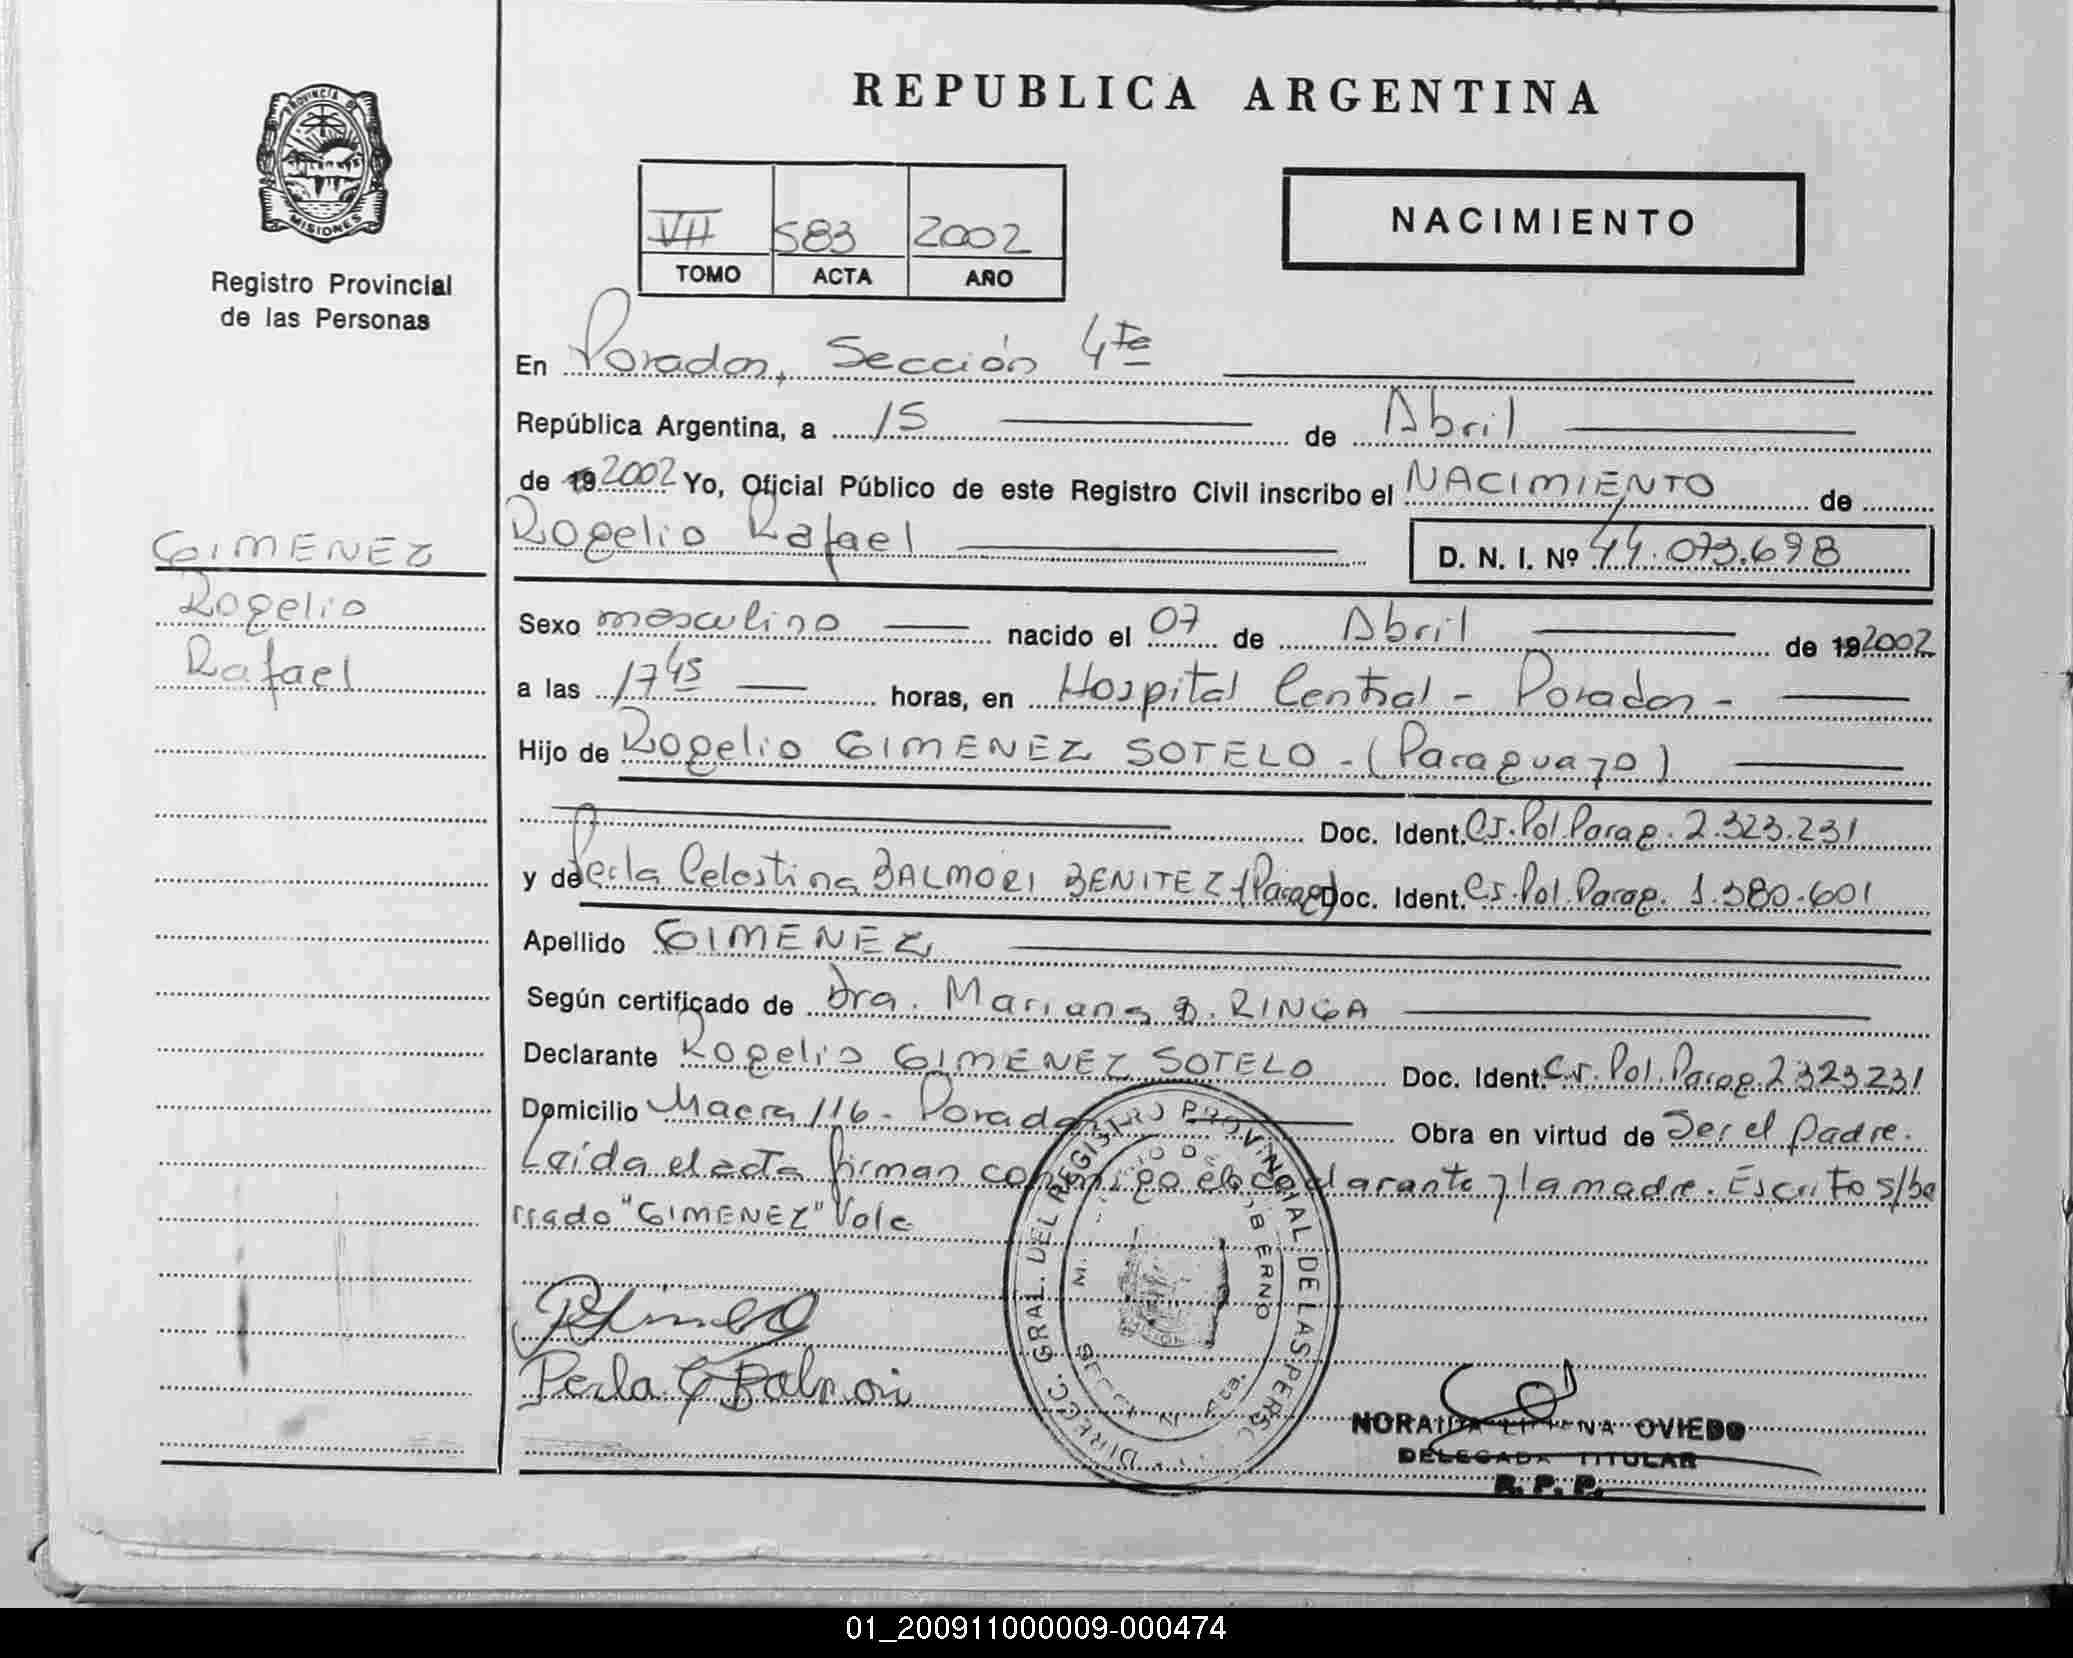 REPUBLICA ARGENTINA
PROVINCIA DE
MISIONES
Registro Provincial
de las Personas
VII 583 2002
TOMO ACTA AÑO
NACIMIENTO
En Posadas, Sección 4ta
República Argentina, a 15 de Abril
de 19 2002 Yo, Oficial Público de este Registro Civil inscribo el NACIMIENTO de
Rogelio Rafael D. N. I. Nº 44.073.698
GIMENEZ
Rogelio
Rafael
Sexo masculino nacido el 07 de Abril de 19 2002
a las 17 45 horas, en Hospital Central - Posadas -
Hijo de Rogelio GIMENEZ SOTELO - (Paraguayo)
Doc. Ident. Cs. Pol. Parag. 2.323.231
y de Perla Celestina BALMORI BENITEZ (Parag) Doc. Ident. Cs. Pol. Parag. 1.380.601
Apellido GIMENEZ
Según certificado de Dra. Mariana B. RINGA
Declarante Rogelio GIMENEZ SOTELO Doc. Ident. Cs. Pol. Parag. 2323231
Domicilio Macra 116 - Posadas Obra en virtud de Ser el padre.
Leída el acta firman conmigo el declarante y la madre. Escrito s/bo
rrado "GIMENEZ" Vale
Perla C Balmori
DIRECC. GRAL. DEL REGISTRO PROVINCIAL DE LAS PERS
GOBIERNO
OVIEDO
DELEGADA TITULAR
R. P. P.
01_200911000009-000474